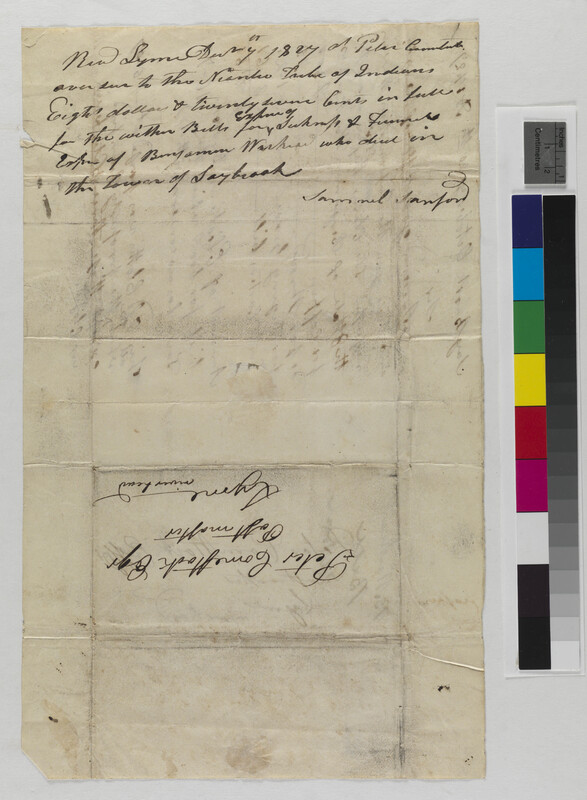 New Lyme 1827 of Peter
over seer to the Niantic Tribe of Indians
Eight dollars & twenty seven Cents in full
for the within Bills for Expences Sickness & Funeral
Expn of Benjamin who died in
the town of Saybrook
Samuel Sanford
Peter Comstock Esqr
Post master
Lyme